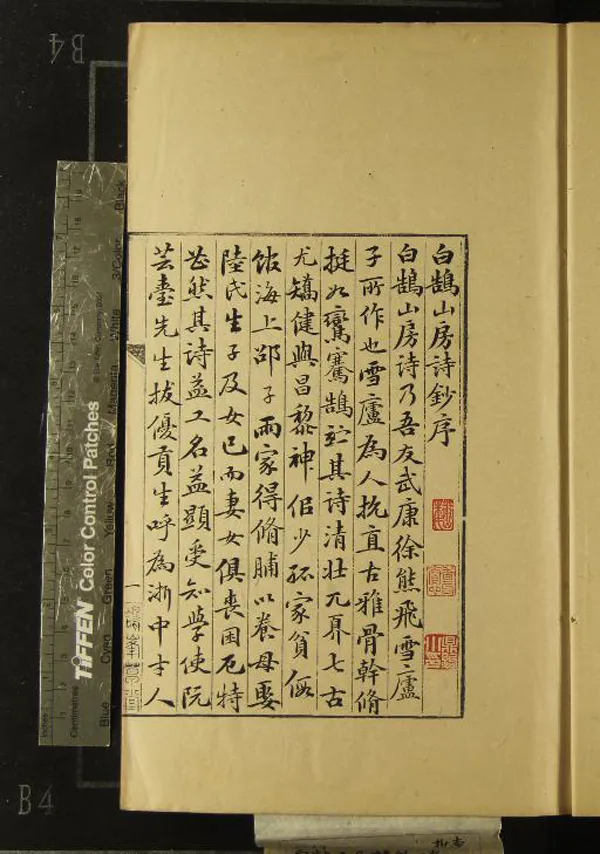 白鵠山房詩鈔序
白鵠山房詩乃吾友武康徐熊飛雪廬
子所作也雪廬為人抗直古雅骨幹脩
挺如鸞騫鵠䟐其詩清壯兀奡七古
尤矯健與昌黎神佀少孤家貧假
館海上邵子兩家得脩脯以養母娶
陸氏生子及女已而妻女俱喪困厄特
甚然其詩益工名益顯受知學使阮
芸臺先生拔優貢生呼為浙中才人
一
B4
B4
TIFFEN Color Control Patches
Blue
Cyan
Green
Yellow
Red
Magenta
White
3/Color
Black
Inches
Centimetres